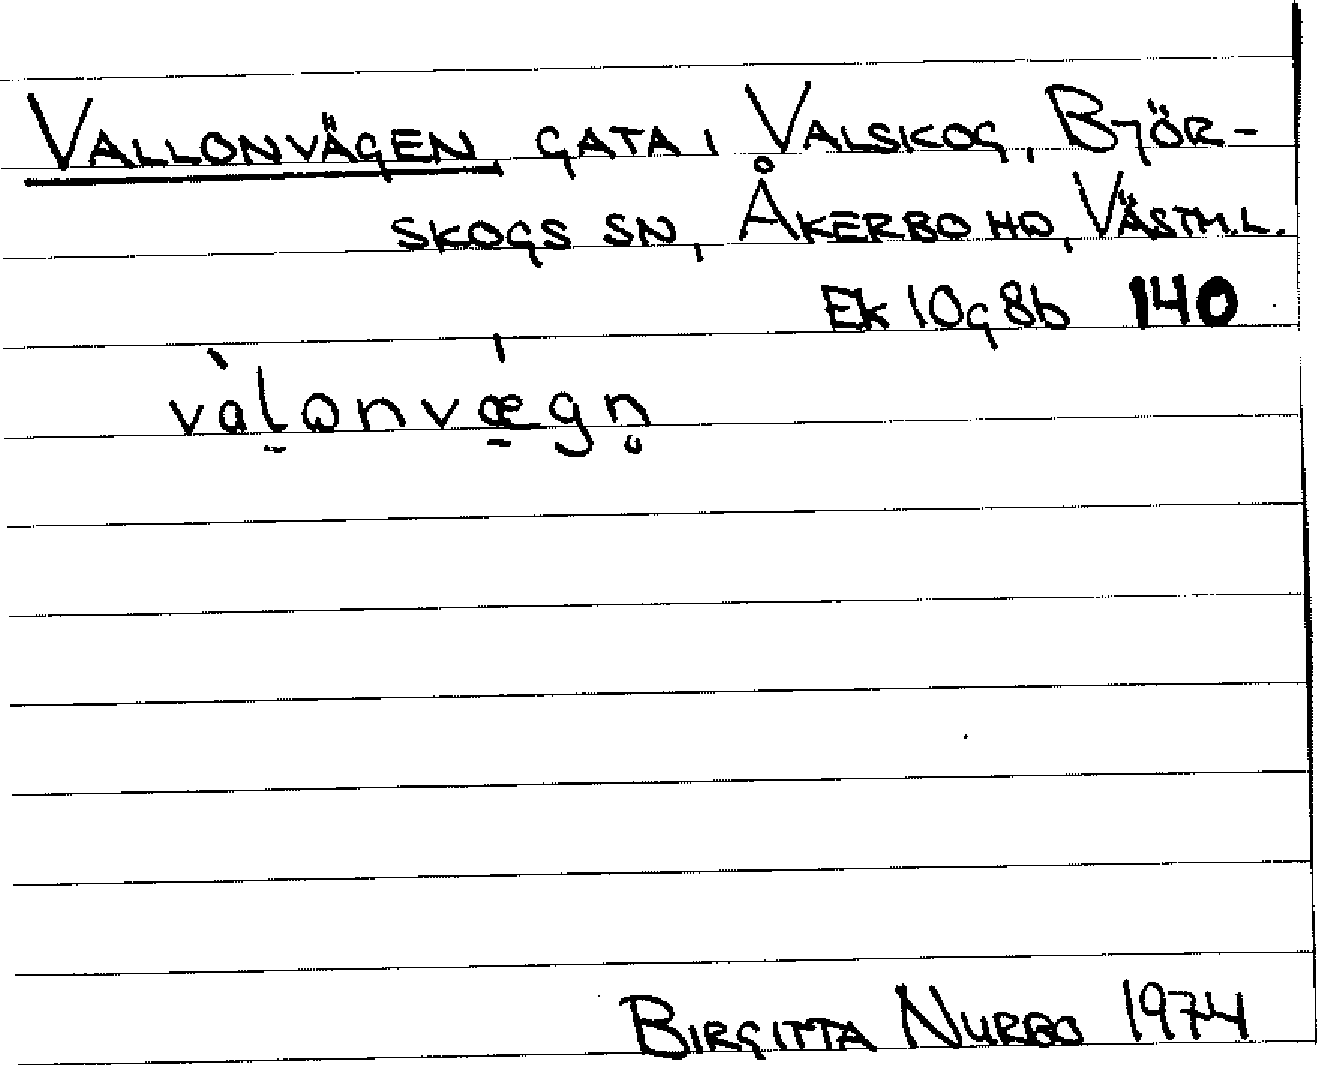 VALLONVÄGEN, GATA I VALSKOG, BJÖR-
SKOGS SN, ÅKERBO HD, VÄSTM.L.
Ek 10g8b 140
vàl̠ɷnvæ̠̍gn̥
BIRGITTA NURBO 1974